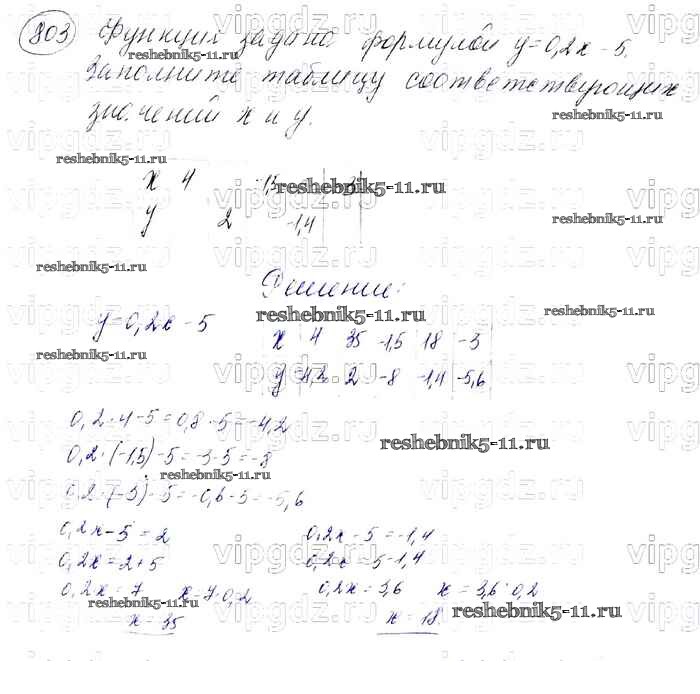 803 Функция задана формулой y=0,2x-5.
Заполните таблицу соответствующих
значений x и y.
x 4 -15
y 2 -1,4
Решение:
y=0,2x-5
x 4 35 -15 18 -3
y -4,2 2 -8 -1,4 -5,6
0,2·4-5=0,8-5=-4,2
0,2·(-15)-5=-3-5=-8
0,2·(-3)-5=-0,6-5=-5,6
0,2x-5=2
0,2x=2+5
0,2x=7 x=7:0,2
x=35
0,2x-5=-1,4
0,2x=5-1,4
0,2x=3,6 x=3,6:0,2
x=18
reshebnik5-11.ru
reshebnik5-11.ru
reshebnik5-11.ru
reshebnik5-11.ru
reshebnik5-11.ru
reshebnik5-11.ru
reshebnik5-11.ru
reshebnik5-11.ru
reshebnik5-11.ru
reshebnik5-11.ru
reshebnik5-11.ru
reshebnik5-11.ru
reshebnik5-11.ru
vipgdz.ru